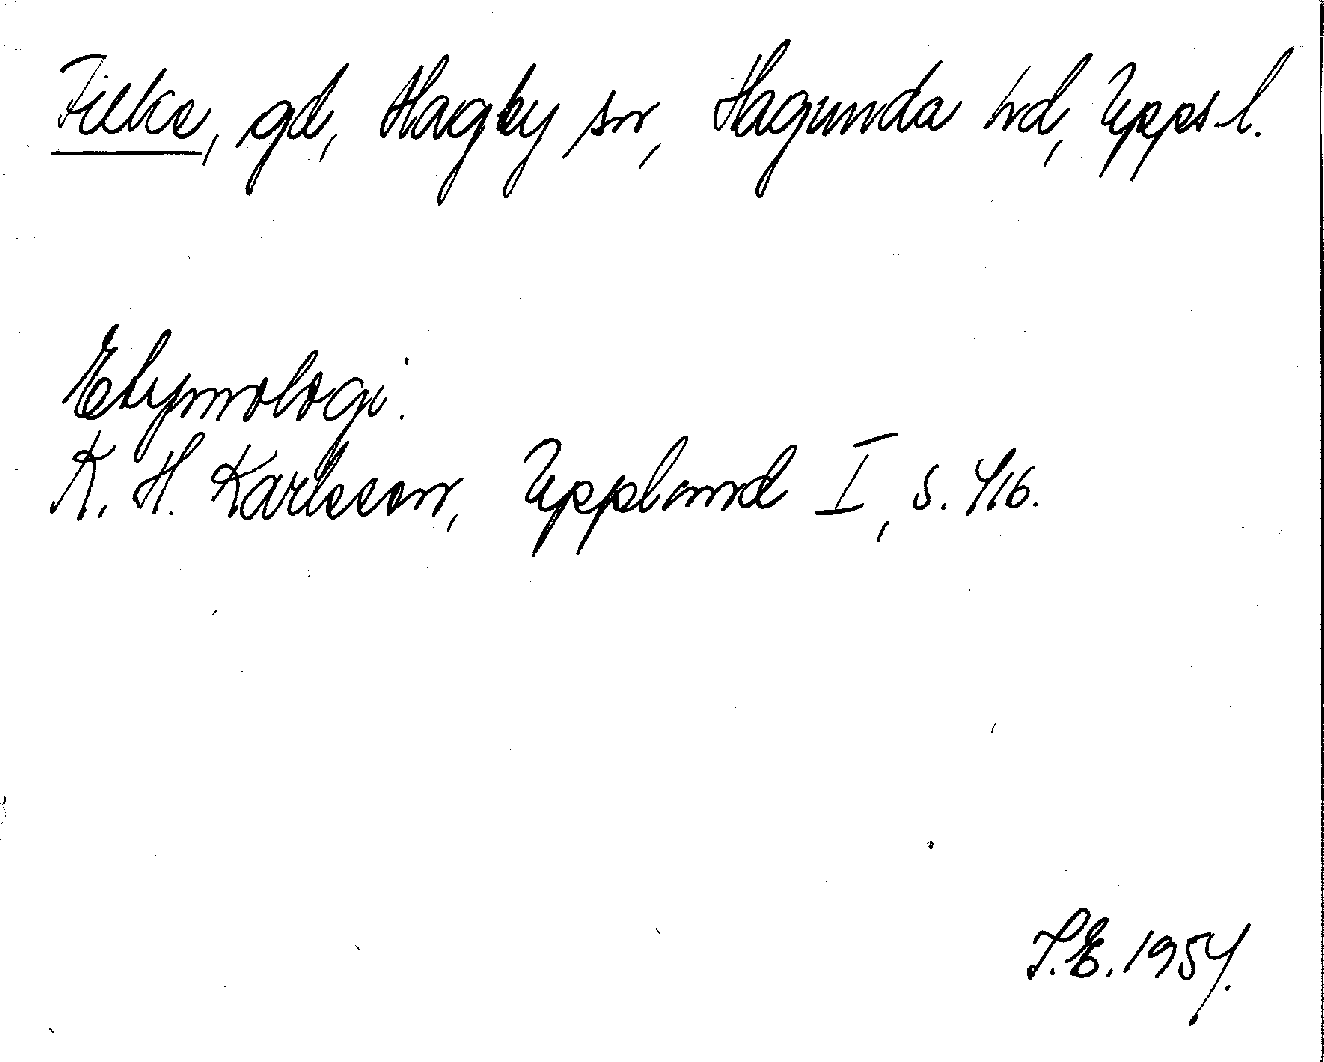 Focke, gd, Hagby sn, Hagunda hd, Upps l.
Etymologi.
K. H. Karlsson, Uppland I, s. 416.
S.E. 1954.